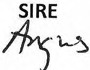 SIRE
Angus